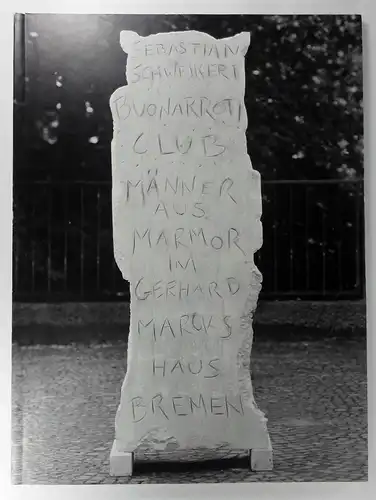 SEBASTIAN
SCHWEIKERT
BUONARROTI
CLUB
MÄNNER
AUS
MARMOR
IM
GERHARD
MARCKS
HAUS
BREMEN